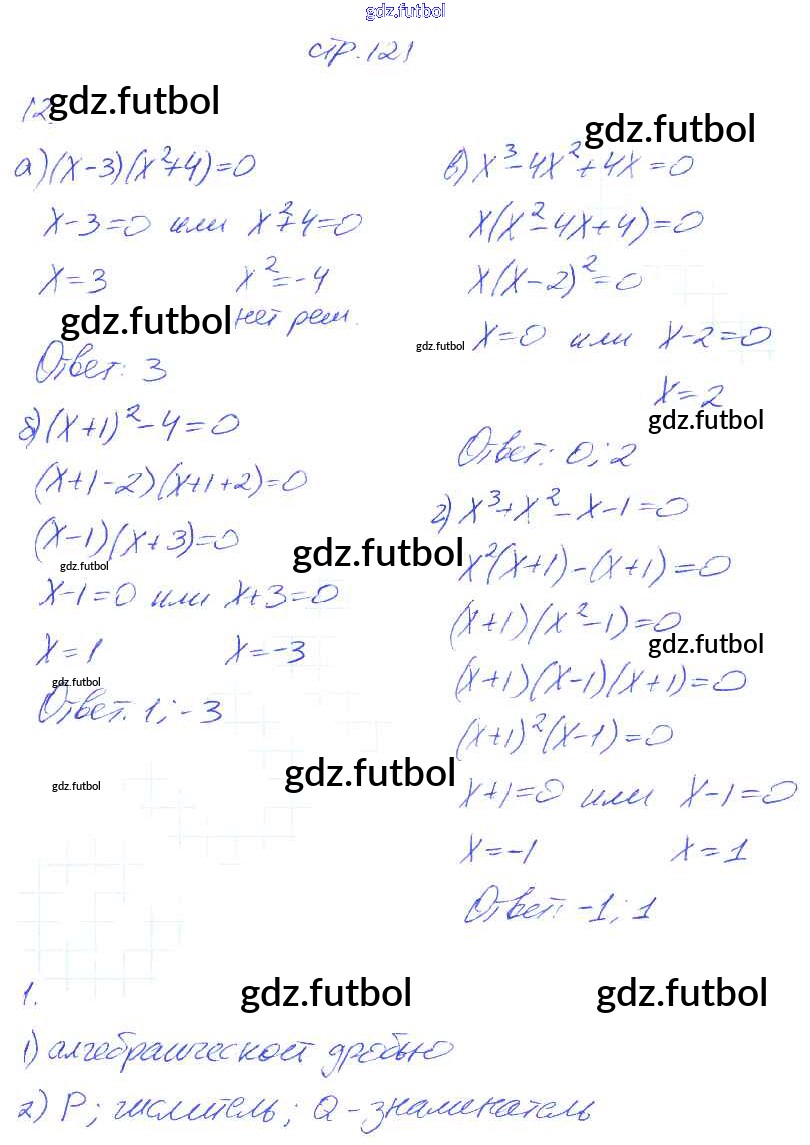 gdz.futbol
стр. 121
12 gdz.futbol
а) (x-3)(x²+4)=0
x-3=0 или x²+4=0
x=3 x²=-4
gdz.futbol нет реш.
Ответ: 3
б) (x+1)²-4=0
(x+1-2)(x+1+2)=0
(x-1)(x+3)=0
gdz.futbol
gdz.futbol
x-1=0 или x+3=0
x=1 x=-3
gdz.futbol
Ответ. 1; -3
gdz.futbol
gdz.futbol
gdz.futbol
в) x³-4x²+4x=0
x(x²-4x+4)=0
x(x-2)²=0
gdz.futbol x=0 или x-2=0
x=2
gdz.futbol
Ответ: 0; 2
г) x³+x²-x-1=0
x²(x+1)-(x+1)=0
(x+1)(x²-1)=0
gdz.futbol
(x+1)(x-1)(x+1)=0
(x+1)²(x-1)=0
x+1=0 или x-1=0
x=-1 x=1
Ответ: -1; 1
1. gdz.futbol gdz.futbol
1) алгебраической дробью
2) P; числитель; Q - знаменатель